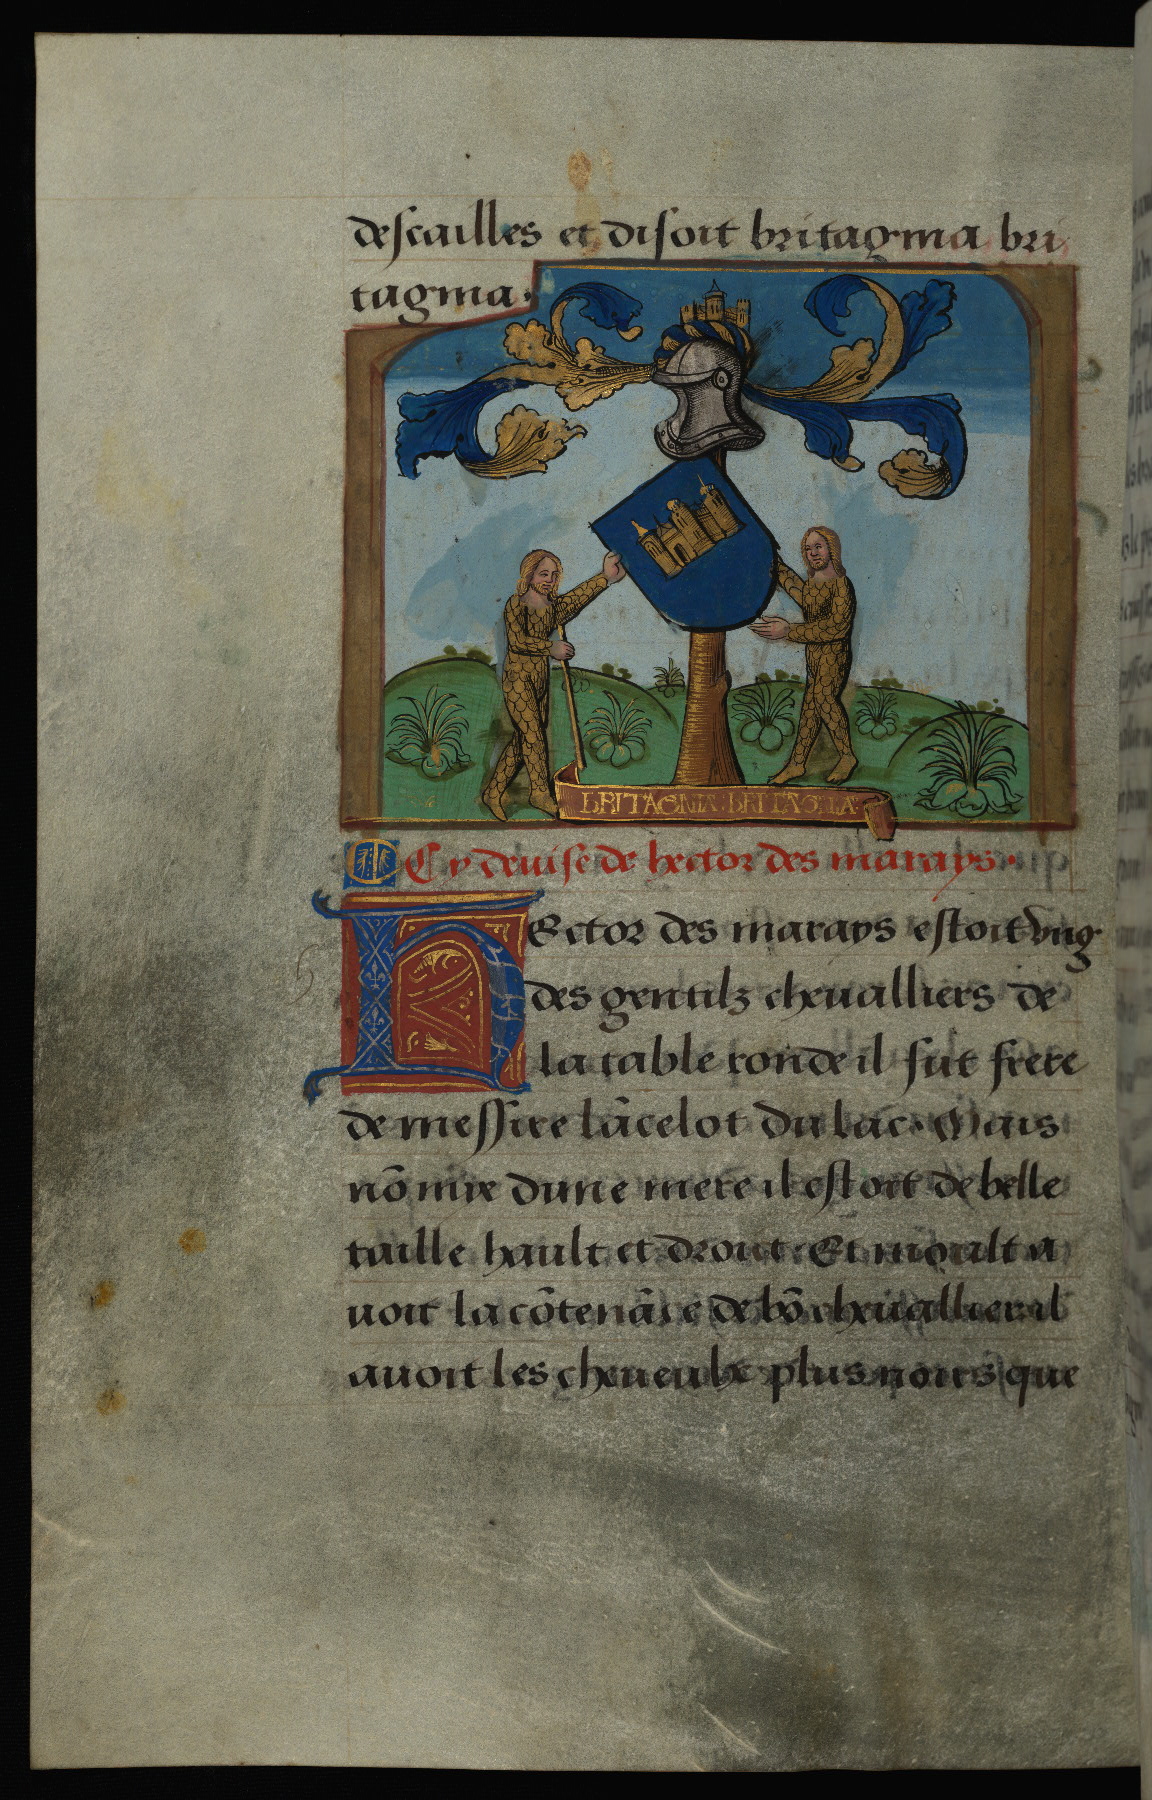 descailles et disoit britagma bri
tagma.
BRITAGNIA BRITAGNIA
Cy deuise de hector des marays.
HEctor des marays estoit vng
des gentilz cheualliers de
la table ronde il fut frere
de messire lācelot du lac. Mais
nō mye dune mere il estoit de belle
taille hault et droit. Et moult a
uoit la cōtenāce de bō cheuallier il
auoit les cheueulx plus noirs que